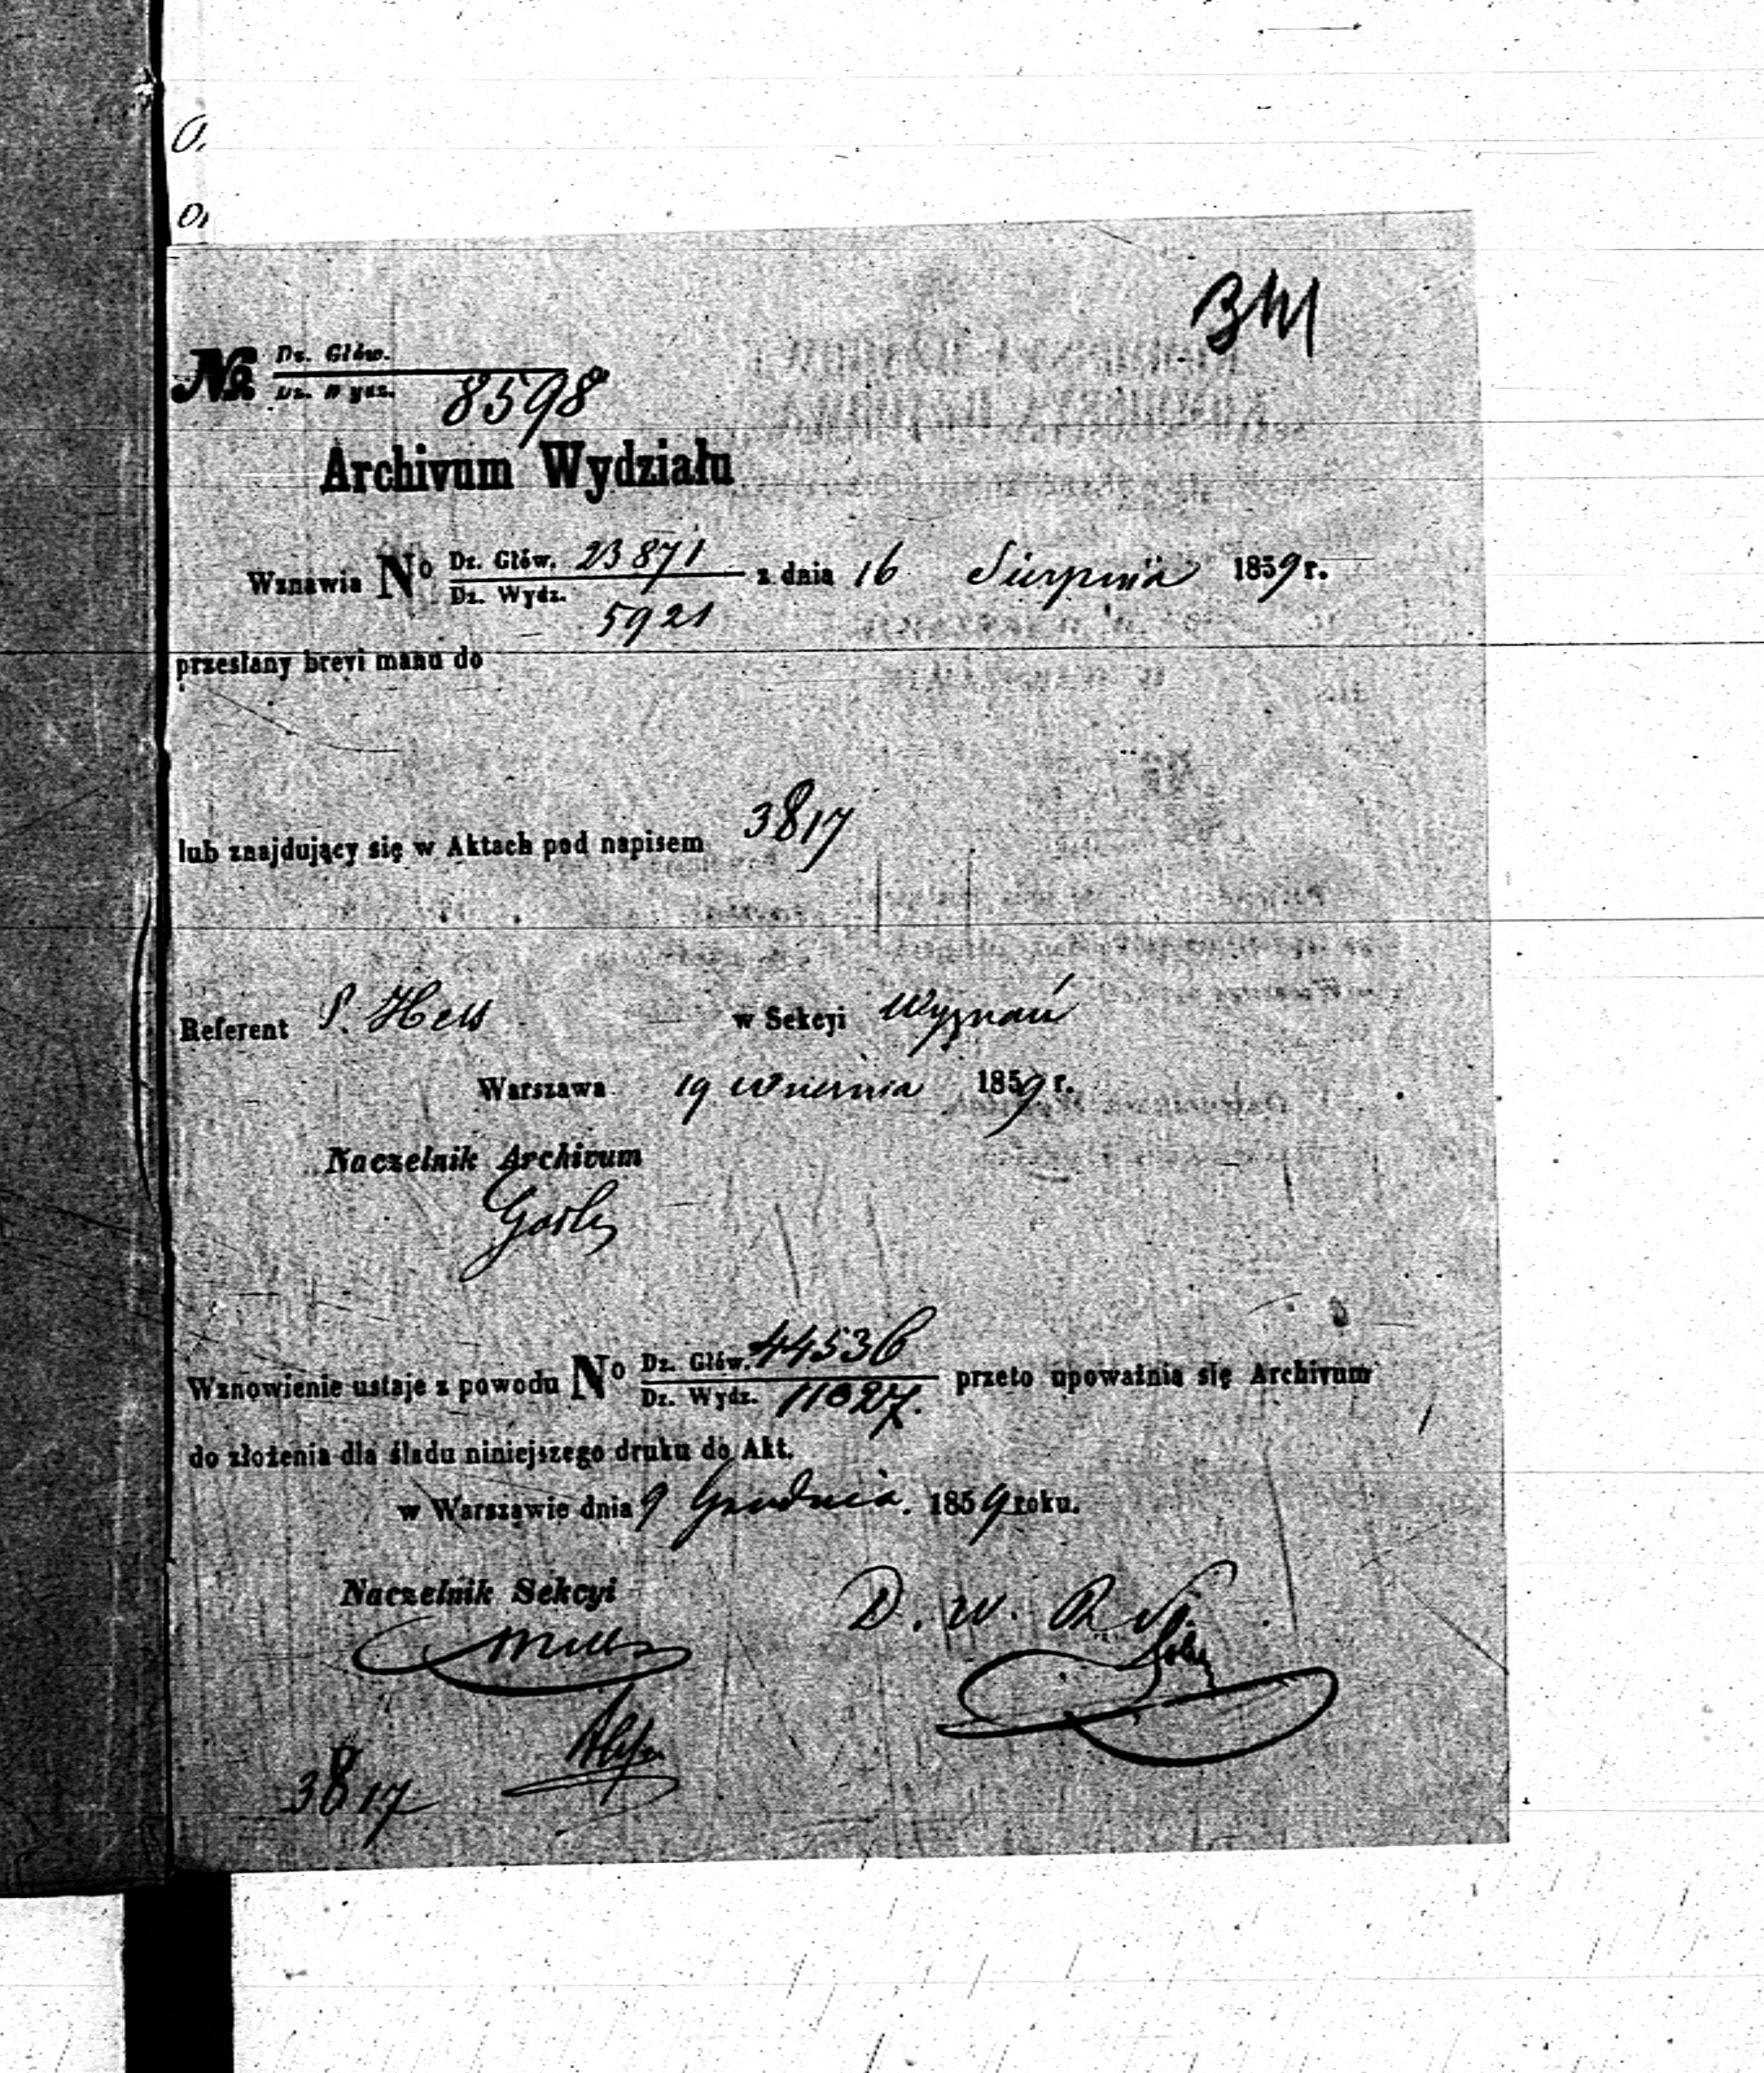 No Dz. Głów.
Dz. Wydz. 8598
Archivum Wydziału
Wznawia No Dz. Głów. 23871 z dnia 16 Sierpnia 1859 r.
Dz. Wydz. 5921
przesłany brevi manu do
lub znajdujący się w Aktach pod napisem 3817
Referent P. Hets w Sekcyi Wyznań
Warszawa 19 Września 1859 r.
Naczelnik Archivum
Wznowienie ustaje z powodu No Dz. Głów. 44536 przeto upoważnia się Archivum
Dz. Wydz. 11827.
do złożenia dla śladu niniejszego druku do Akt.
w Warszawie dnia 9 Grudnia. 1859 roku.
Naczelnik Sekcyi D. W.
3817